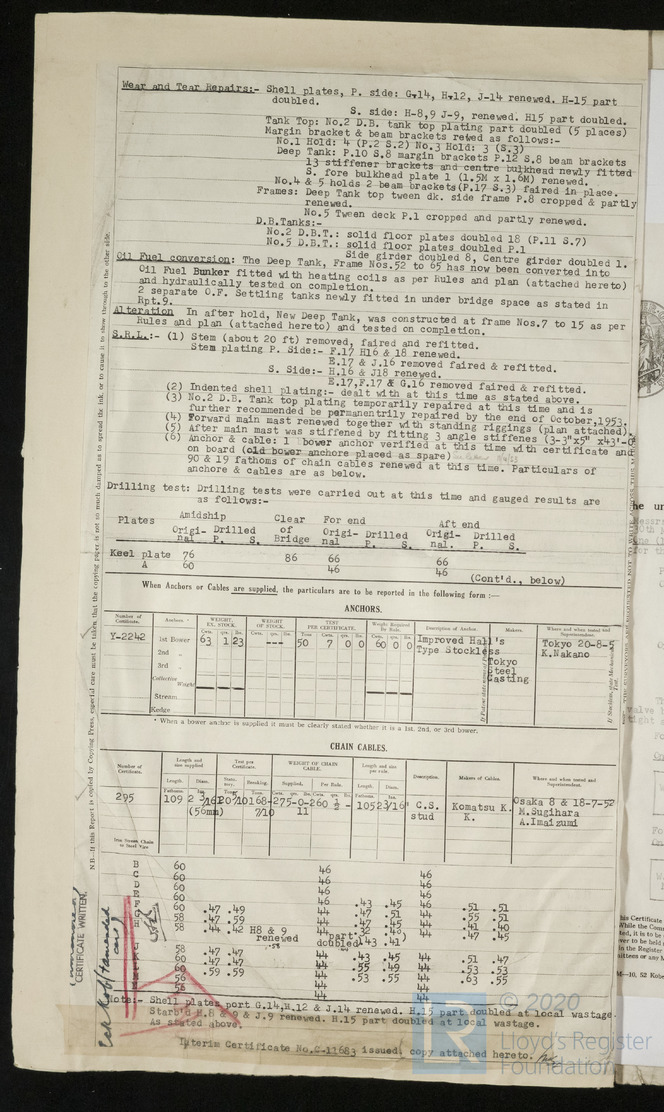 Wear and Tear Repairs:- Shell plates, P. side: G.14, H.12, J-14 renewed. H-15 part
doubled.
S. side: H-8,9 J-9, renewed. H15 part doubled.
Tank Top: No.2 D.B. tank top plating part doubled (5 places)
Margin bracket & beam brackets rewed as follows:-
No.1 Hold: 4 (P.2 S.2) No.3 Hold: 3 (S.3)
Deep Tank: P.10 S.8 margin brackets P.12 S.8 beam brackets
13 stiffener brackets and centre bulkhead newly fitted
S. fore bulkhead plate 1 (1.5M x 1.6M) renewed.
No.4 & 5 holds 2 beam brackets(P.17 S.3) faired in place.
Frames: Deep Tank top tween dk. side frame P.8 cropped & partly
renewed.
No.5 Tween deck P.1 cropped and partly renewed.
D.B.Tanks:-
No.2 D.B.T.: solid floor plates doubled 18 (P.11 S.7)
No.5 D.B.T.: solid floor plates doubled P.1
Side girder doubled 8, Centre girder doubled 1.
Oil Fuel conversion: The Deep Tank, Frame Nos.52 to 65 has now been converted into
Oil Fuel Bunker fitted with heating coils as per Rules and plan (attached hereto)
and hydraulically tested on completion.
2 separate O.F. Settling tanks newly fitted in under bridge space as stated in
Rpt.9.
Alteration In after hold, New Deep Tank, was constructed at frame Nos.7 to 15 as per
Rules and plan (attached hereto) and tested on completion.
S.R.L.:- (1) Stem (about 20 ft) removed, faired and refitted.
Stem plating P. Side:- F.17 H16 & 18 renewed.
E.17 & J.16 removed faired & refitted.
S. Side:- H.16 & J18 renewed.
E.17,F.17 & G.16 removed faired & refitted.
(2) Indented shell plating:- dealt with at this time as stated above.
(3) No.2 D.B. Tank top plating temporarily repaired at this time and is
further recommended be permanentrily repaired by the end of October,1953.
(4) Forward main mast renewed together with standing riggings (plan attached).
(5) After main mast was stiffened by fitting 3 angle stiffenes (3-3"x5" x43'-0"
(6) Anchor & cable: 1 bower anchor verified at this time with certificate and
on board (old bower anchore placed as spare)
90 & 19 fathoms of chain cables renewed at this time. Particulars of
anchore & cables are as below.
Drilling test: Drilling tests were carried out at this time and gauged results are
as follows:-
Plates Amidship Clear For end Aft end
Origi- Drilled of Origi- Drilled Origi- Drilled
nal P. S. Bridge nal P. S. nal. P. S.
Keel plate 76 86 66 66
A 60 46 46 (Cont'd., below)
When Anchors or Cables are supplied, the particulars are to be reported in the following form :—
ANCHORS.
Number of Certificate. Anchors. * WEIGHT. EX. STOCK. WEIGHT OF STOCK. TEST PER CERTIFICATE. Weight Required by Rule. Description of Anchor. Makers. Where and when tested and Superintendent.
Y-2242 1st Bower 63 1 23 --- 50 7 0 0 60 0 0 Improved Hall's Tokyo 20-8-5
2nd " Type Stockless K.Nakano
3rd " Tokyo
Collective Weight Steel
Stream Casting
Kedge
* When a bower anchor is supplied it must be clearly stated whether it is a 1st, 2nd, or 3rd bower.
CHAIN CABLES.
Number of Certificate. Length and size supplied Test per Certificate. WEIGHT OF CHAIN CABLE. Length and size per rule. Description. Makers of Cables. Where and when tested and Superintendent.
Length. Diam. Statutory. Breaking. Supplied. Per Rule. Length. Diam.
295 109 2 3/16 120 5/10 168- 275-0- 260 ½ - 105 2 3/16" C.S. Komatsu K. Osaka 8 & 18-7-52
(56mm) 7/10 11 stud K. M.Sugihara
A.Imaizumi
B 60 46 46
C 60 46 46
D 60 46 46
E 60 46 46
60 .47 .49 44 .43 .45 44 .51 .51
58 .47 .59 44 .47 .51 44 .55 .51
.44 .42 H8 & 9 .47 .45 .41 .40
renewed part .32 .40 .47 .45
.58 doubled .43 .41
58 .47 .47 44 .43 .45 44 .51 .47
60 .47 .47 44 .55 .49 44 .53 .53
60 .59 .59 44 .53 .55 44 .63 .55
56 44 44
56 44 44
Note:- Shell plates port G.14,H.12 & J.14 renewed. H.15 part doubled at local wastage.
Starb'd H.8 & 9 & J.9 renewed. H.15 part doubled at local wastage.
As stated above.
Interim Certificate No.C-11683 issued, copy attached hereto.
CERTIFICATE WRITTEN.
© 2020
Lloyd's Register
Foundation